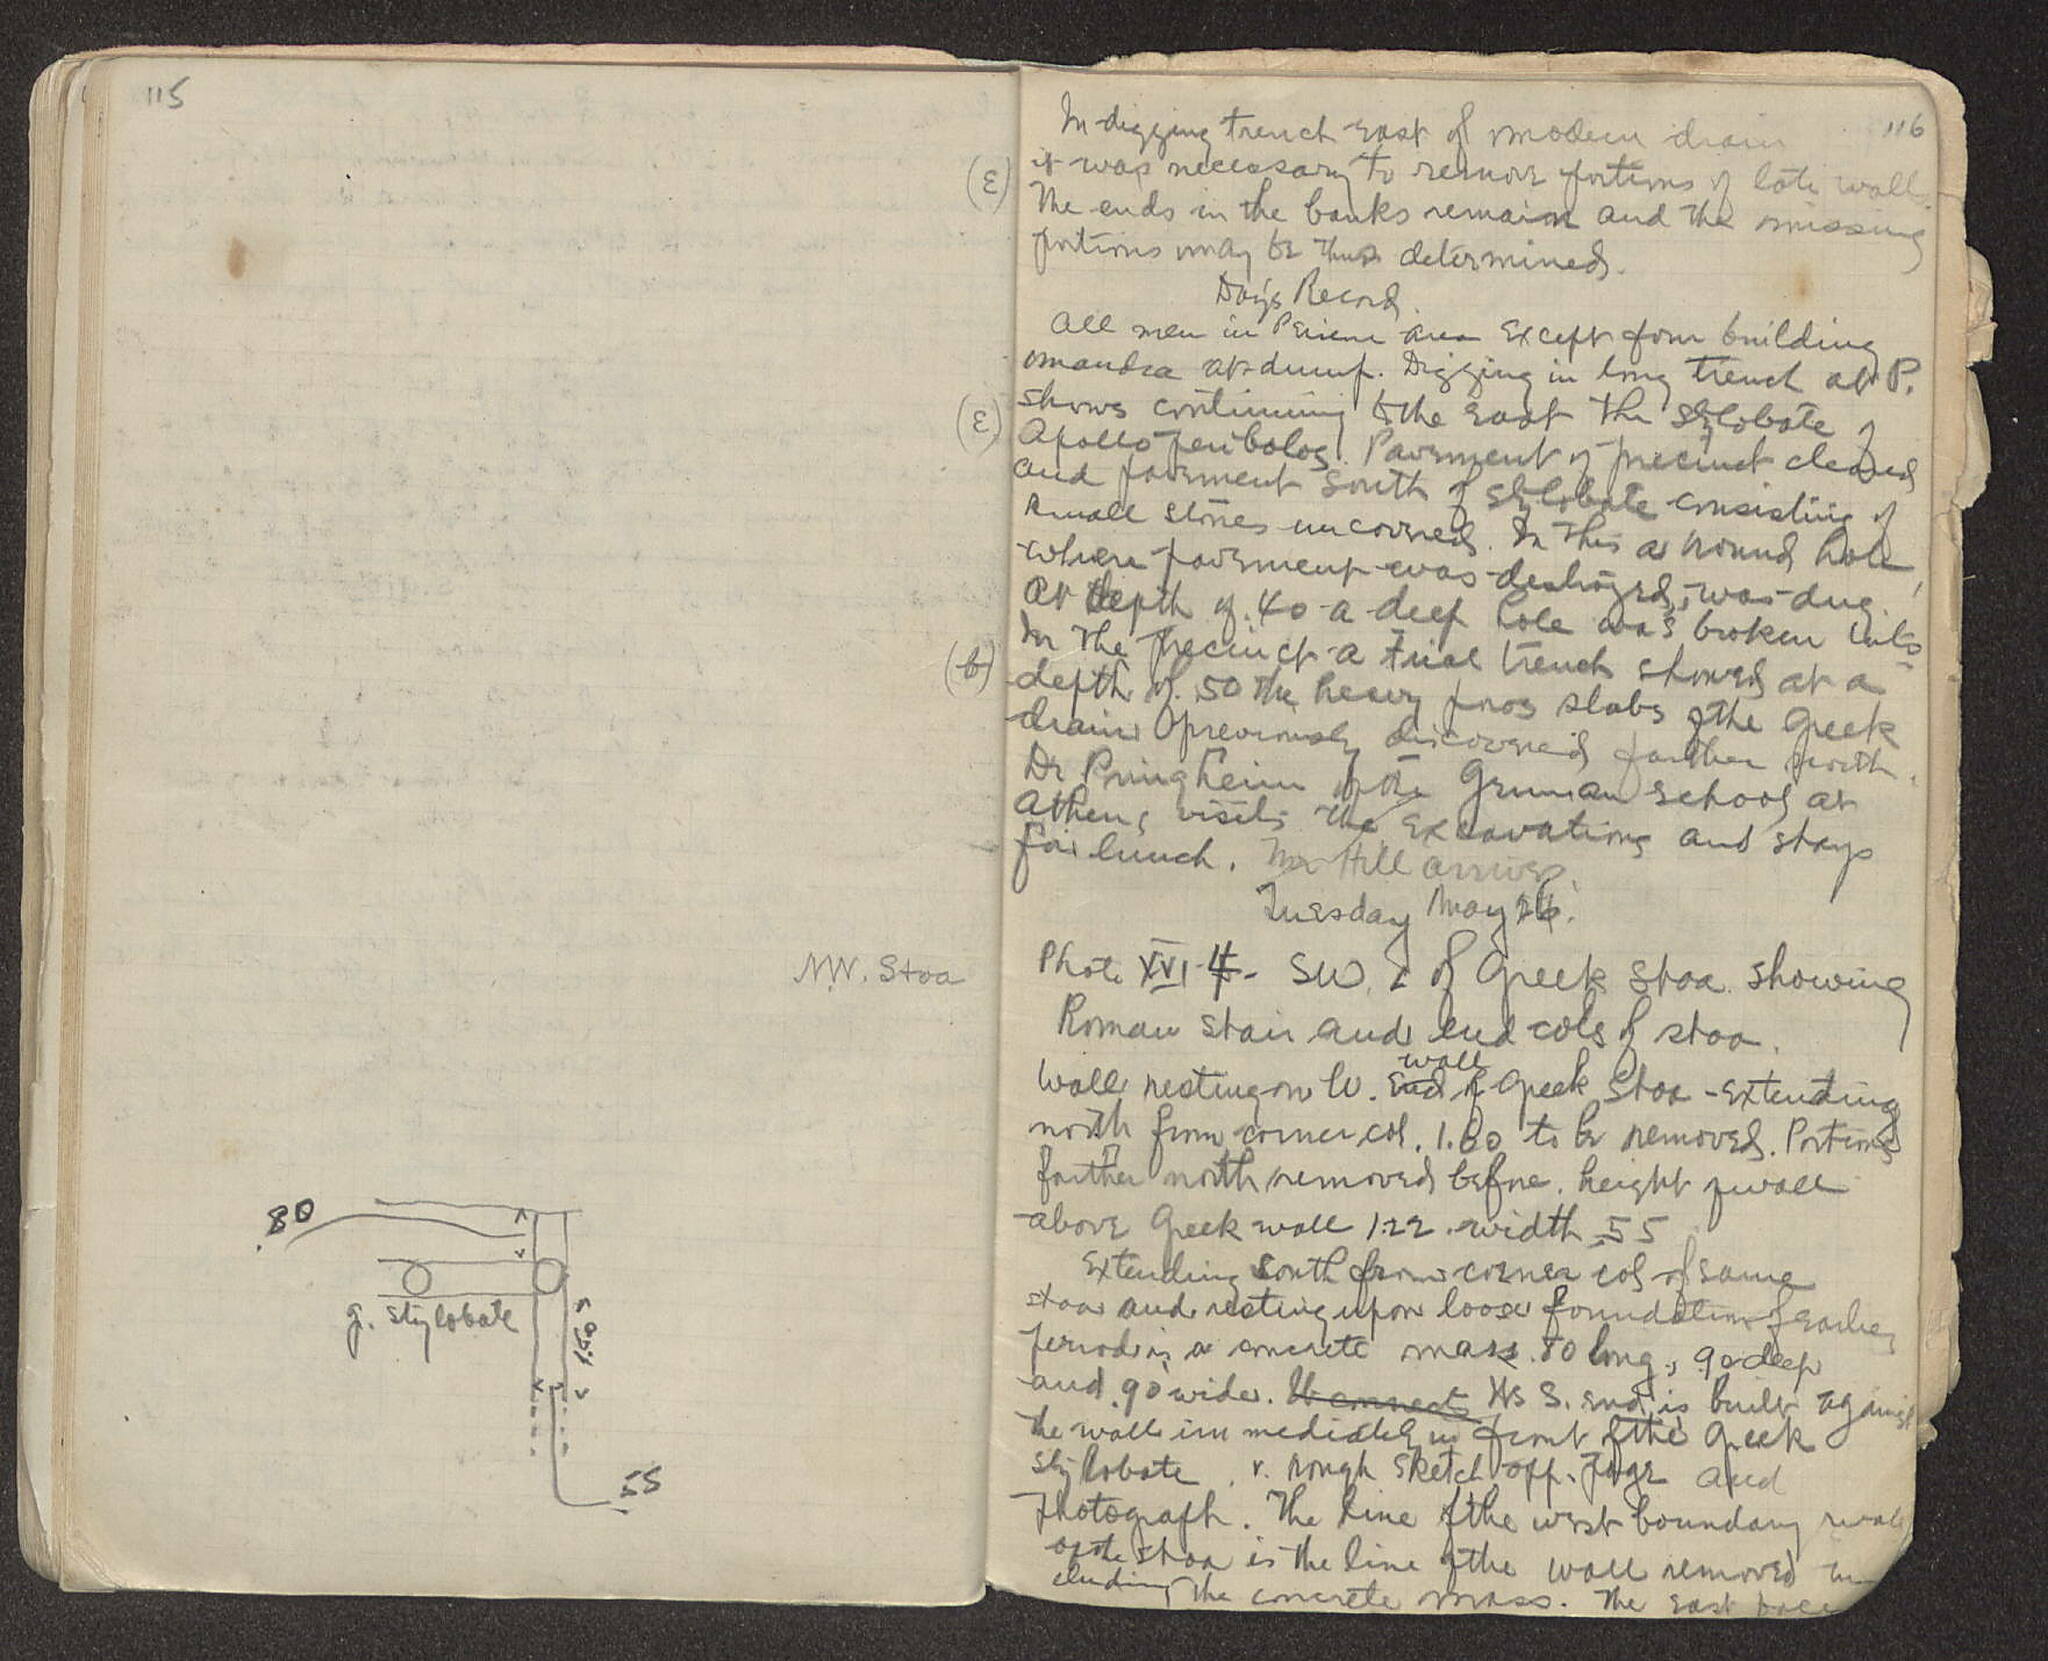 115
N.W. Stoa
.80
g. stylobate
.55
116
In digging trench east of modern drain
(E) it was necessary to remove portions of late wall.
The ends in the banks remain and the missing
portions may be thus determined.
Day's Record.
All men in Peirene area except four building
mandra at dump. Digging in long trench at P.
(E) shows continuing to the east the stylobate of
Apollo peribolos. Pavement of precinct cleared
and pavement south of stylobate consisting of
small stones uncovered. In this a round hole,
where pavement was destroyed, was dug.
At depth of .40 a deep hole was broken into
(b) In the precinct a trial trench showed at a
depth of .50 the heavy poros slabs of the Greek
drain previously discovered farther north.
Dr Pringheim of the German school at
Athens visits the excavations and stays
for lunch. Mr Hill arrives.
Tuesday May 26.
Photo XVI-4- SW. of Greek Stoa showing
Roman stair and end cols of stoa.
wall
Wall resting on W. end of Greek Stoa - extending
north from corner col. 1.60 to be removed. Portions
farther north removed before. height of wall
above Greek wall 1.22. width .55
Extending South from corner col of same
stoa and resting upon loose foundation of earlier
period is a concrete mass .80 long, .90 deep
and .90 wide. It connects Its S. end is built against
the wall immediately in front of the Greek
stylobate. v. rough sketch opp. page and
photograph. The line of the west boundary wall
of the stoa is the line of the wall removed in-
cluding the concrete mass. The east face